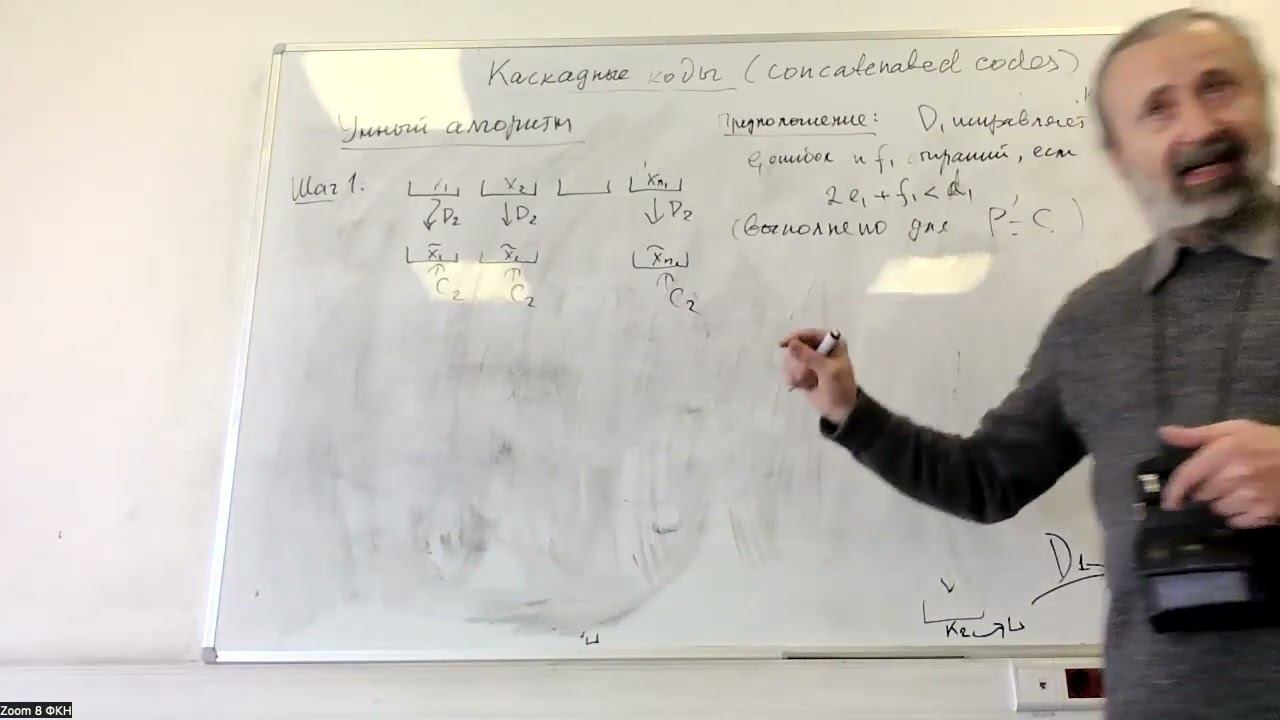 Каскадные коды (concatenated codes)
Умный алгоритм
Предположение: D₁ исправляет
e₁ ошибок и f₁ стираний, если
2e₁ + f₁ < d₁
(выполнено для P-C )
Шаг 1. x₁ x₂ xₙ₁
D₂ D₂ D₂
x̃₁ x̃₂ x̃ₙ₁
C₂ C₂ C₂
D₁
K₂
Zoom 8 ФКН